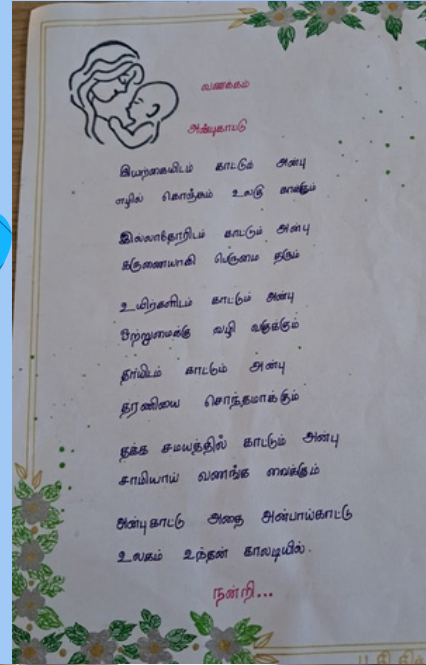 வணக்கம்
அன்புகாட்டு
இயற்கையிடம் காட்டும் அன்பு
எழில் கொஞ்சும் உலகு காக்கும்
இல்லாதோரிடம் காட்டும் அன்பு
கருணையாகி பெருமை தரும்
உயிர்களிடம் காட்டும் அன்பு
ஒற்றுமைக்கு வழி வகுக்கும்
தாயிடம் காட்டும் அன்பு
தரணியை சொந்தமாக்கும்
தக்க சமயத்தில் காட்டும் அன்பு
சாமியாய் வணங்க வைக்கும்
அன்புகாட்டு அதை அன்பாய்காட்டு
உலகம் உந்தன் காலடியில்.
நன்றி...